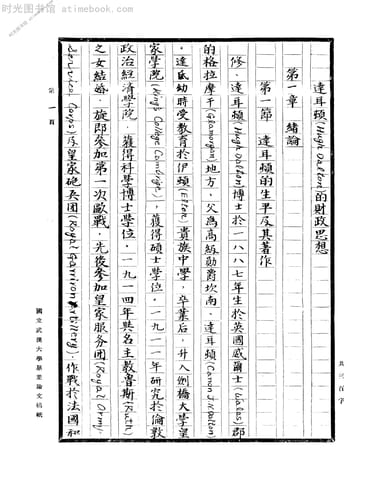 时光图书馆 atimebook.com
达耳頓(Hugh Dalton)的財政思想
第一章 緒論
第一節 達耳頓的生平及其著作
達耳頓(Hugh Dalton)博士於一八八七年生於英國威爾士(Wales)郡
的格拉摩干(Glamorgan)地方,父為高級勛爵坎南·達耳頓(Canon J.N.Dalton)
。達氏幼時受教育於伊頓(Eton)貴族中學,卒業后,升入劍橋大學皇
家學院(King's College Cambridge),獲得碩士學位。一九一一年研究於倫敦
政治經濟學院,獲得科學博士學位。一九一四年與名主教魯斯(Ruth)
之女結婚。旋即參加第一次歐戰,先後參加皇家服务团(Royal Army
Service Corps)及皇家砲兵团(Royal Garrison Artillery),作戰於法國和
第一頁
國立武漢大學畢業論文稿紙
共三百字